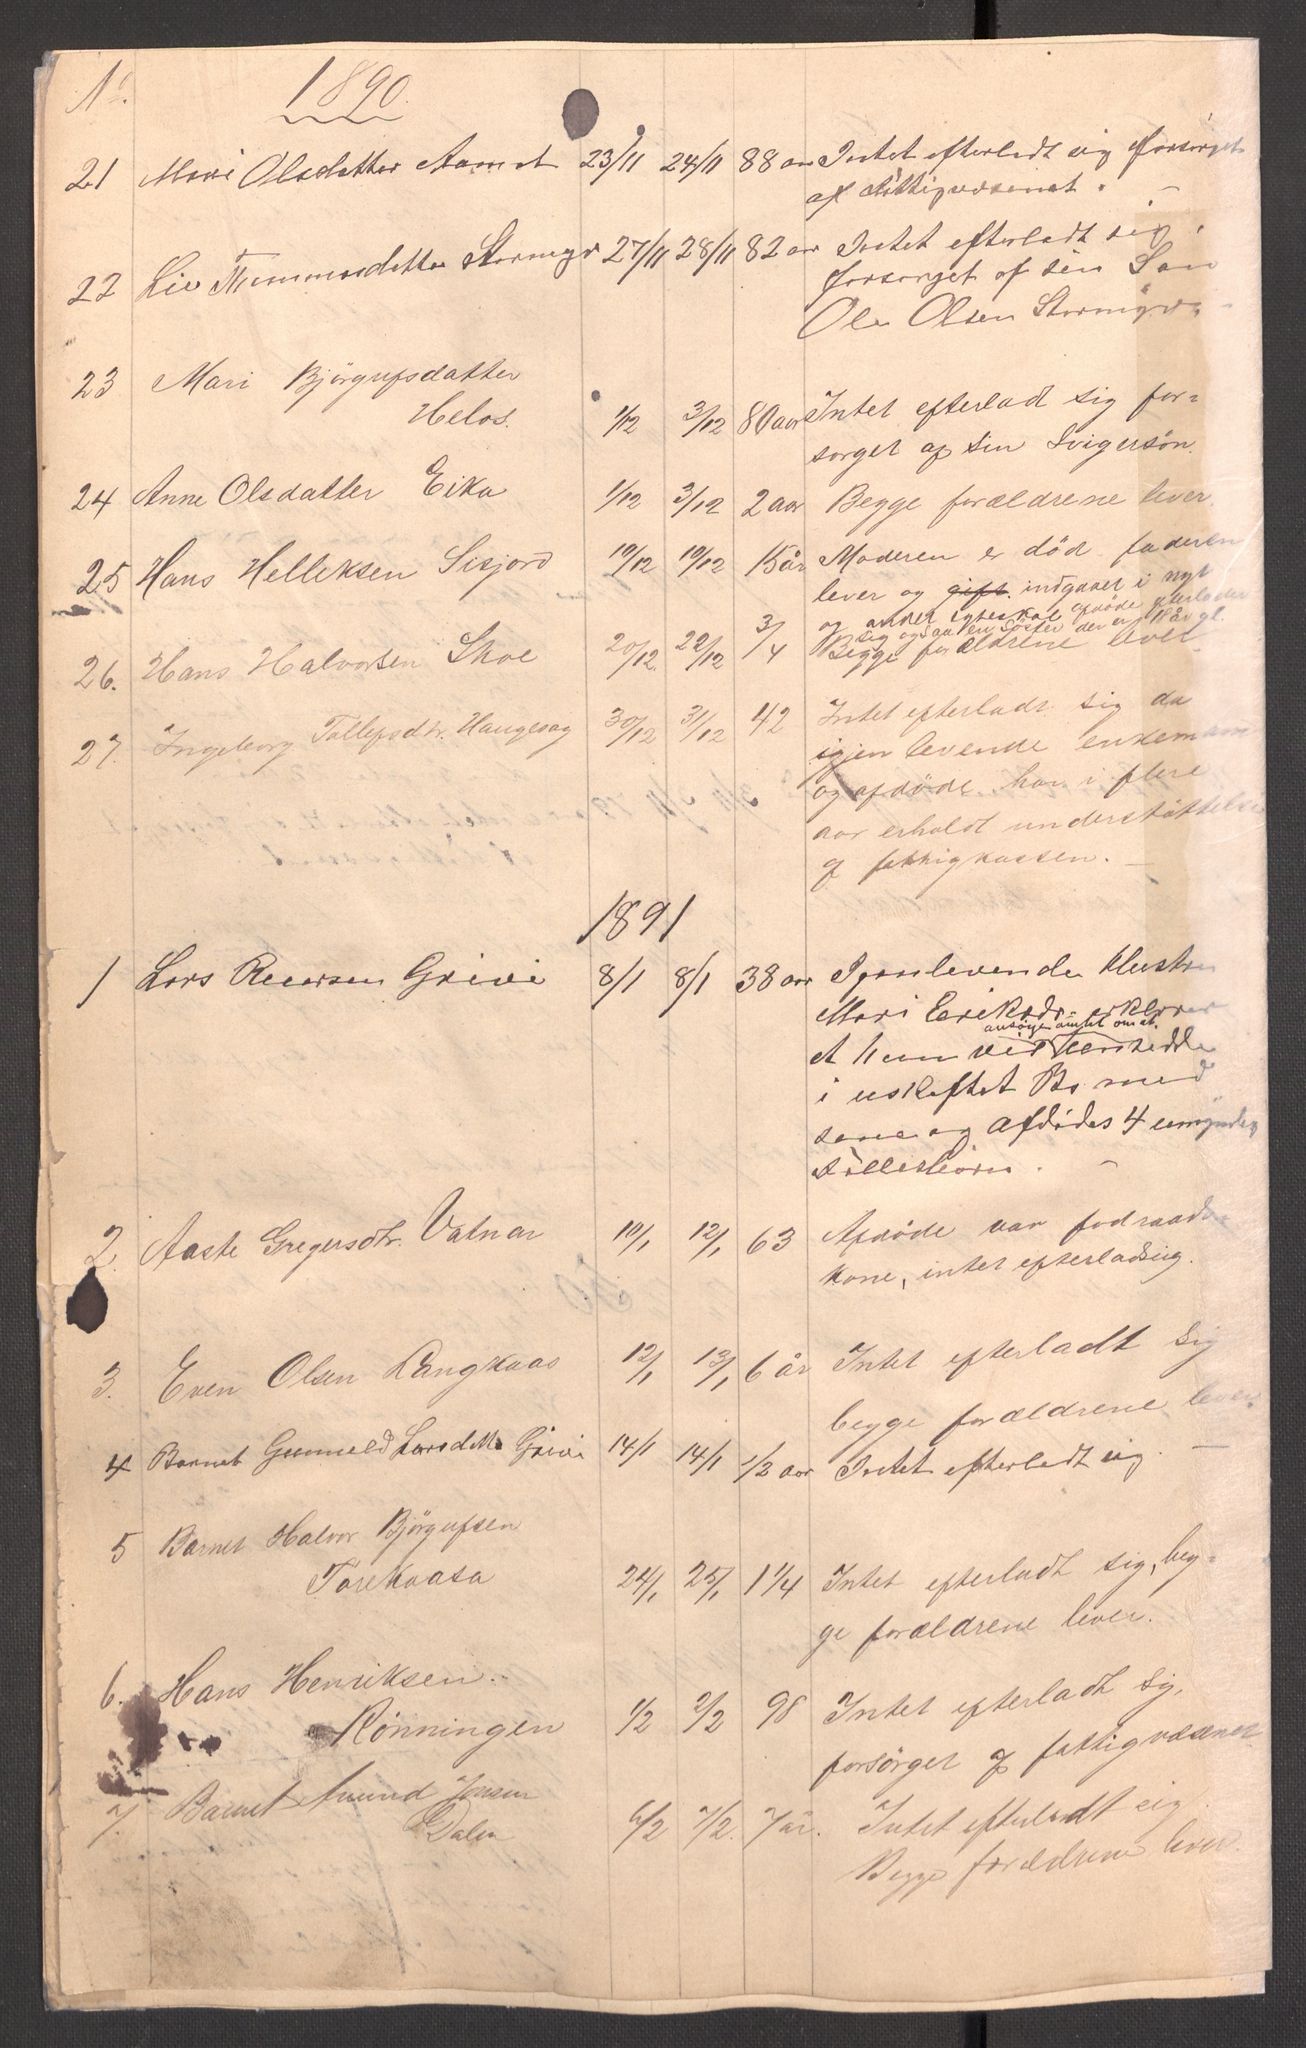 No. 1890.
21 Mari Olsdatter Aamot 23/11 24/11 88 aar Intet efterladt sig forsørget
af Fattigvæsenet. -
22 Liv Tommesdatter Stormyr 27/11 28/11 82 aar Intet efterladt sig,
forsørget af sin Søn
Ole Olsen Stormyr
23 Mari Bjørgufsdatter
Helos. 1/12 3/12 80 aar Intet efterlad sig for-
sørget af sin Svigersøn.
24 Anne Olsdatter Eika 1/12 3/12 2 aar Begge forældrene lever.
25 Hans Helleksen Sisjord 19/12 19/12 15 år Moderen er død faderen
lever og gift. indgaaet i nyt
og andet egteskab afdøde efterlader
sig ogsaa en Søster der er 18 år gl.
26. Hans Halvorsen Skoe 20/12. 22/12 3/4 Begge forældrene lever.
27. Ingeborg Tollefsdtr. Haugesag 30/12 31/12 42 Intet efterladt sig da
igjenlevende enkemann
og afdøde har i flere
aar erholdt understøttelse
af fattigkassen. -
1891
1 Lars Reiersen Grivi 8/1 8/1 38 aar Igjenlevende Hustru
Mari Eriksdr. erklærer
at hun vil ansøge amtet om at hensidde
i uskiftet Bo med
sine og Afdødes 4 umyndige
Fællesbørn. -
2. Aaste Gregersdtr. Vatnar 10/1 12/1 63 Afdøde var fodraads-
kone, intet efterladt sig.
3. Even Olsen Langkaas 12/1 13/1 6 år Intet efterladt sig
begge forældrene lever.
4 Barnet Gunnild Larsdtt. Grivi 14/1 14/1 1/2 aar Intet efterladt sig. -
5 Barnet Halvor Bjørgufsen
Torekaasa 24/1 25/1 1 1/4 Intet efterladt sig, beg-
ge forældrene lever.
6. Hans Henriksen
Rønningen 1/2 2/2 98 Intet efterladt sig,
forsørget af fattigvæsenet
7 Barnet Amund Jonsen
Dalen 6/2 7/2. 7 år. Intet efterladt sig
Begge forældrene lever.